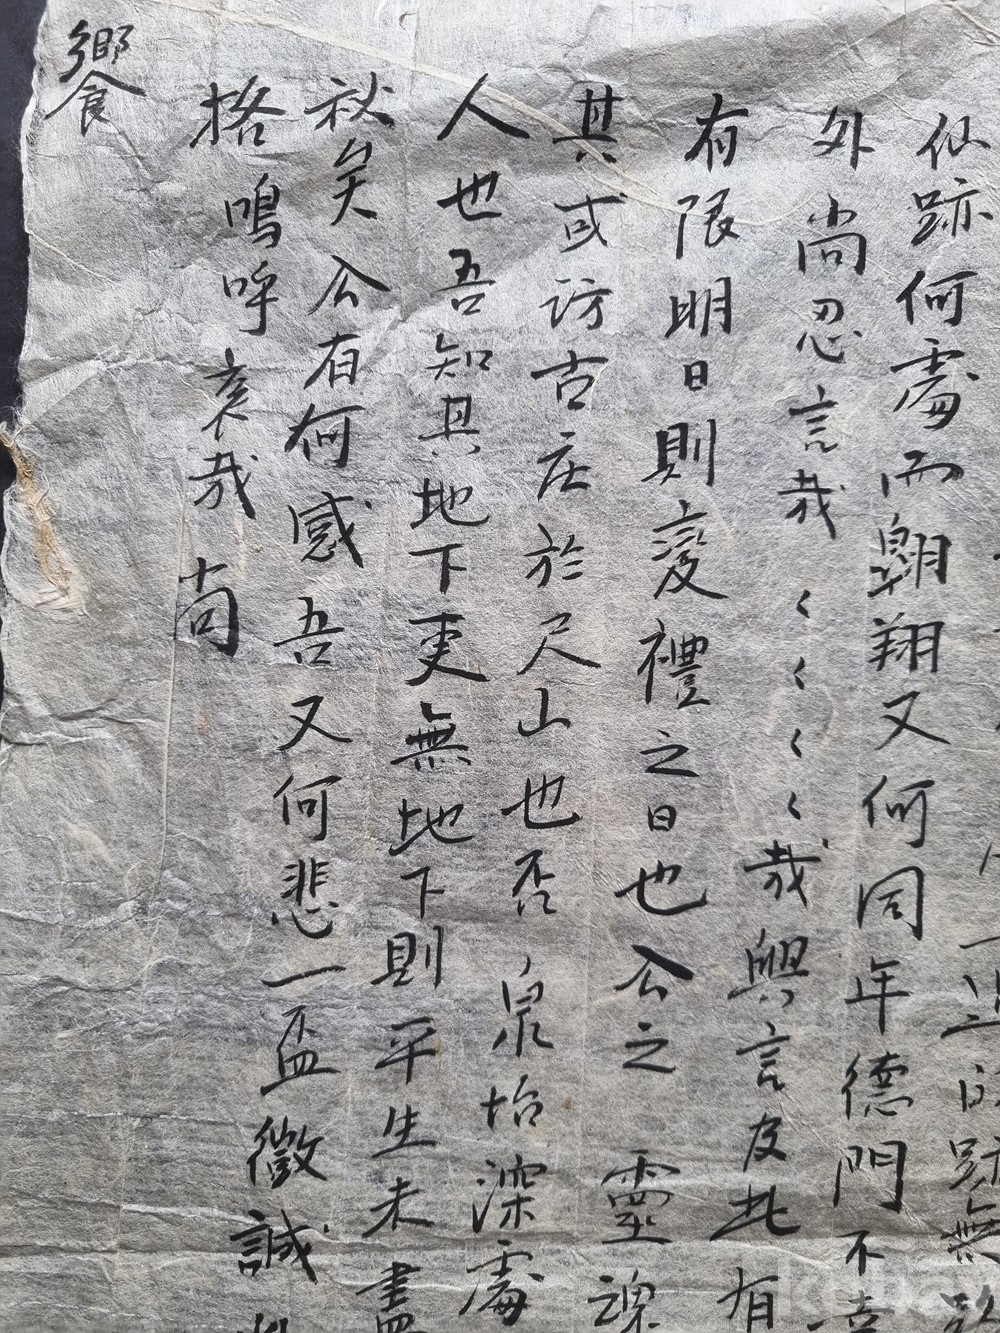 一
仙跡何處而翱翔又何同年德門不
外尚忍言哉〱〱〱〱哉興言及此 有
有限明日則變禮之日也公之 靈魂
其或訪古庄於尺山也否 泉坮深處
人也吾知其地下更無地下則平生未盡
秋矣公有何感吾又何悲一盃徵誠
格嗚呼哀哉 尙
饗